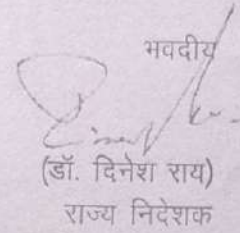 भवदीय
(डॉ. दिनेश राय)
राज्य निदेशक